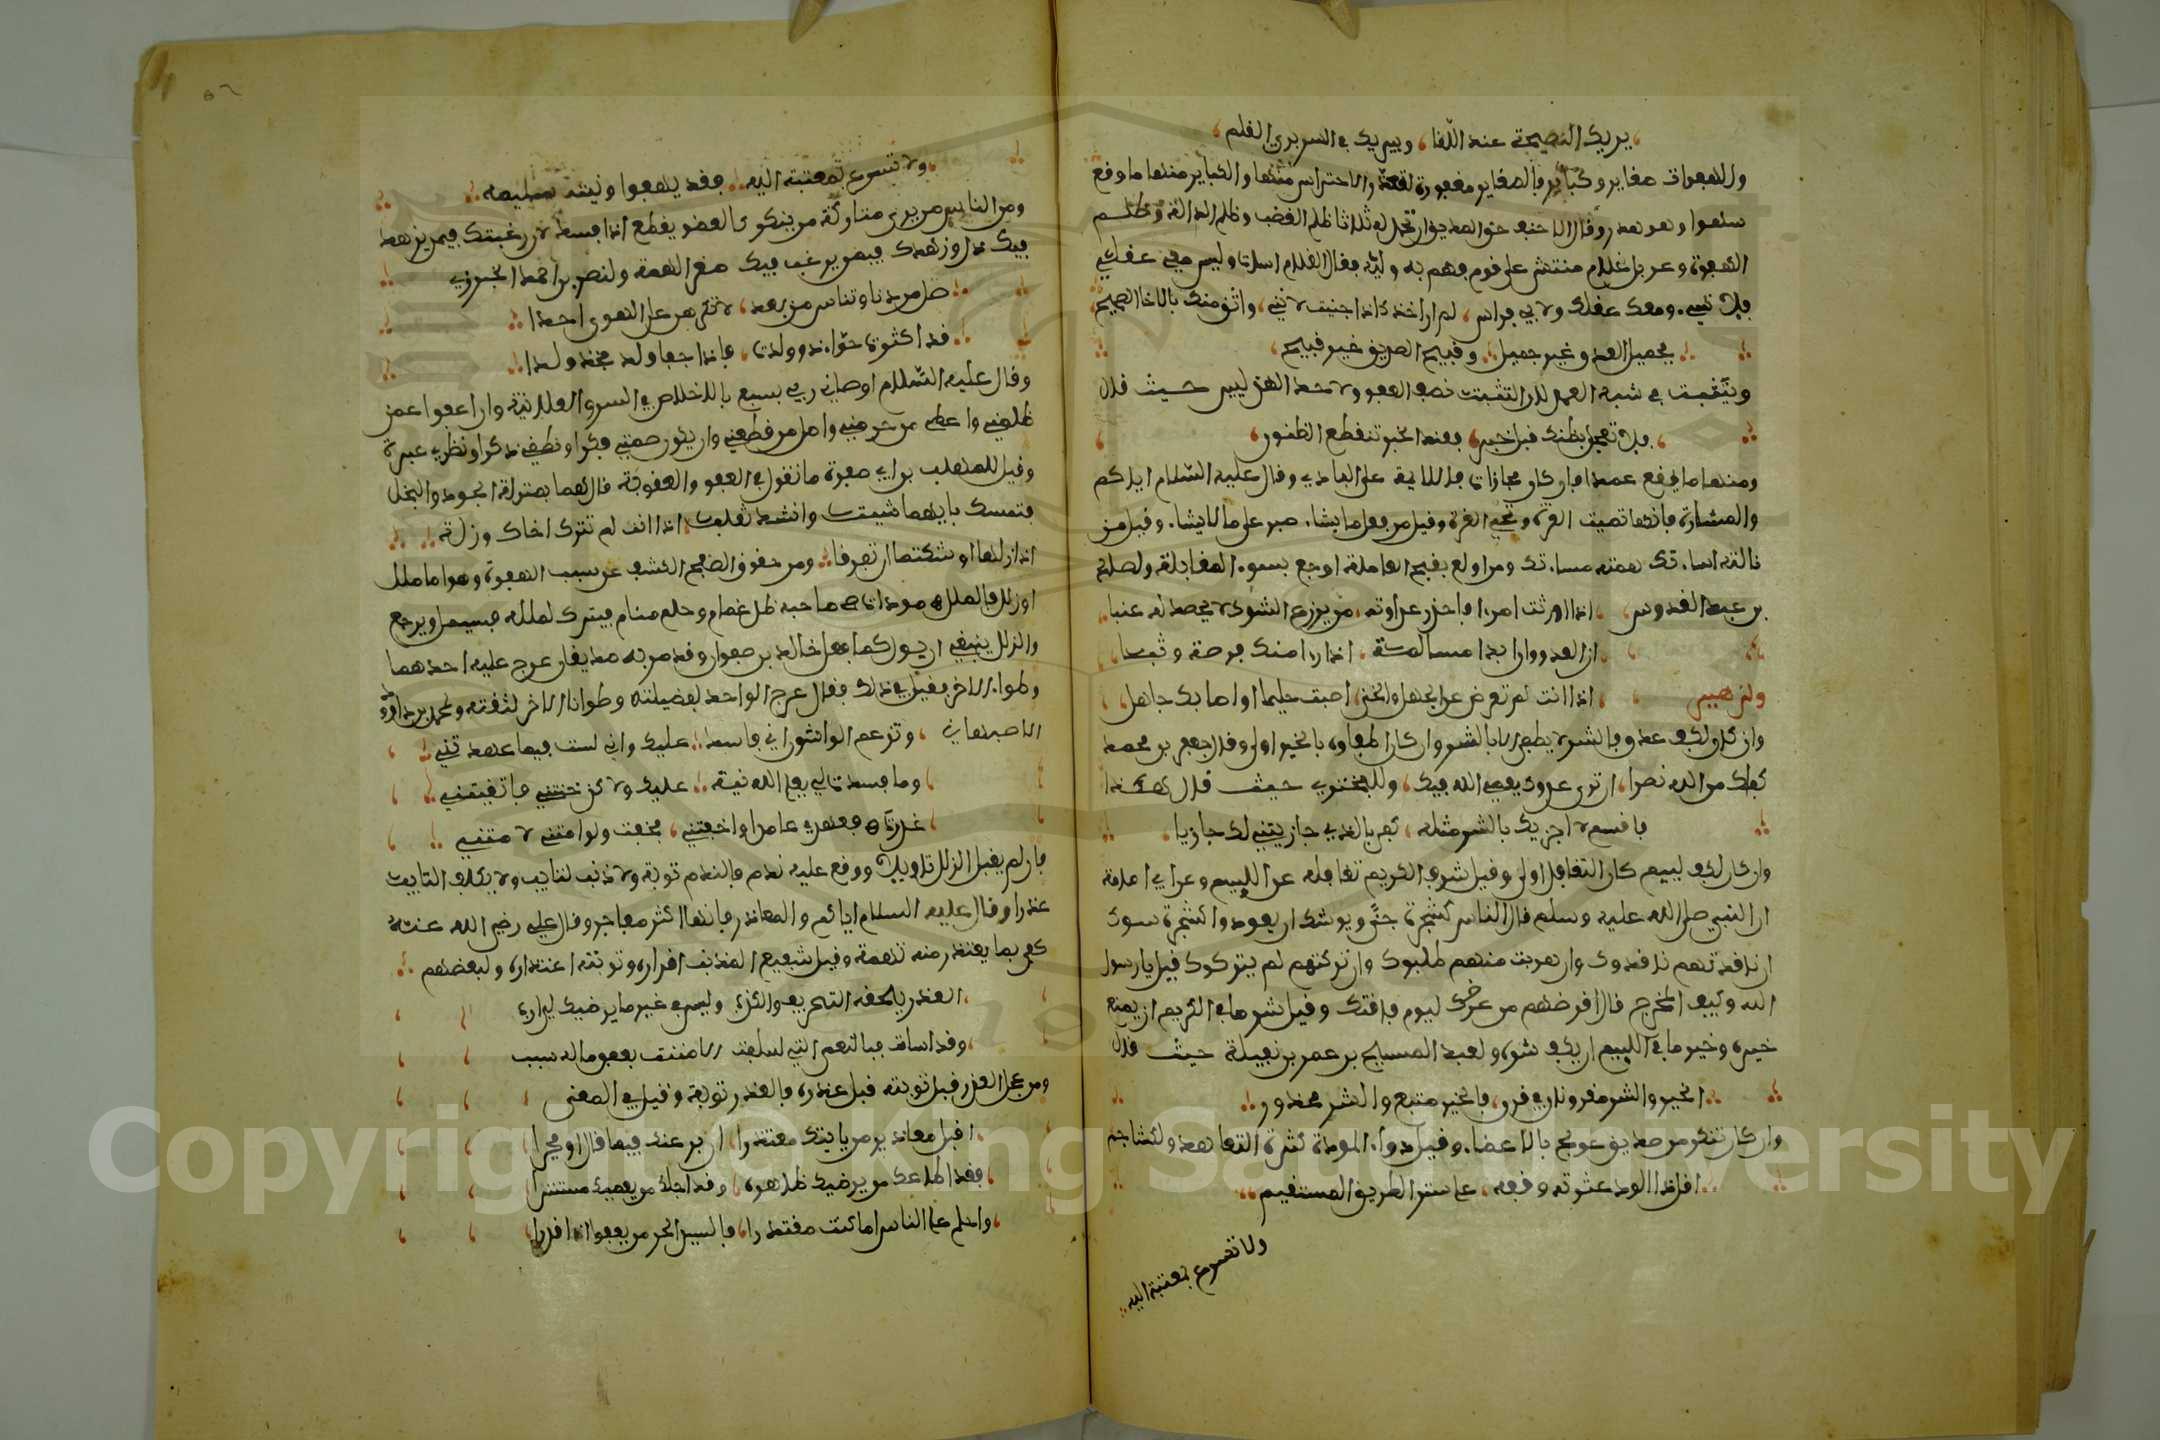 يريك النصيحة عند اللقا، ويبريك في السر بري القلم،
وللهفوات صغاير وكباير فالصغاير مغفورة لقلة الاحتراس منها والكباير منها ما وقع
سهوا وهو هدر وقال الاحنف حق الصديق ان تحمل له ثلاثا ظلم الغضب وظلم الدالة وظلم
الهفوة وعربد غلام منتش على قوم فهم به وليه فقال الغلام اسات وليس معي عقلي
فلا تسيء ومعك عقلك ولابي فراس، لم اواخذك اذا جنيت لاني، واثق منك بالاخا الصحيح،
فجميل العدو غير جميل وقبيح الصديق غير قبيح،
ويتعقب في شبه العمل لان التثبت نصف العفو ولاحمد
فلا تعجل بظنك قبل خبر، فعند الخبر تنقطع الظنون،
ومنها ما يقع عمدا فان كان مجازات فاللايمة على البادي وقال عليه السلام اياكم
والمشارة فانها تميت الغرة وتحيي العرة وقيل من فعل ما يشاء صبر على ما لا يشاء وقيل من
نالته اساءتك همته مساءتك ومن اولع بقبح المعاملة اوجع بسوء المقابلة ولصالح
بن عبد القدوس اذا وترت امرا فاحذر عداوته، من يزرع الشوك لا يحصد به عنبا
ان العدو وان ابدا مسالمة، اذا را منك فرصة وثبا
ولزهير اذا انت لم تعرض عن الجهل والخنى، اصبت حليما او اصابك جاهل
وان كان لكف عدو فالشر لا يطفى الا بالشر وان كان اطفاوه بالخير اولى وقال جعفر بن محمد
كفاك من الله نصرا، ان ترى عدوك يعصي الله فيك، وللبحتري حيث قال
فاقسم لا اجزيك بالشر مثله، كفى بالذي جازيتني لك جازيا
وان كان لكف ليم كان التغافل اولى وقيل شرف الكريم تغافله عن الليم وعن ابي امامة
ان النبي صلى الله عليه وسلم قال الناس كشجرة جنى ويوشك ان يعودوا كشجرة شوك
ان ناقدتهم ناقدوك وان هربت منهم طلبوك وان تركتهم لم يتركوك قيل يا رسول
الله وكيف المخرج قال اقرضهم من عرضك ليوم فاقتك وقيل شر ما في الكريم ان يمنع
خيره وخير ما في الليم ان يكف شره ولعبد المسيح بن عمر بن نفيلة حيث قال
الخير والشر مقرونان في قرن، فالخير متبع والشر محذور
وان كان تنكر من صديق عولج بالاغضاء وقيل دواء المودة كثرة التعاهد ولكشاجم
اقل ذا الود عثرته وقفه، على سنن الطريق المستقيم
ولا تسرع بمعتبة اليه
ولا تسرع لمعتبة اليه فقد يهفوا ونيته سليمه
ومن الناس من يرى متاركة من ينكر كالعضو يقطع اذا فسد لان رغبتك فيمن يزهد
فيك ذل وزهدك فيمن يرغب فيك صغر الهمة ولنصر بن احمد الخبزرزي
صل من دنا وتناس من بعدا، لا تكرهن على الهوى احدا
قد اكثرت حواء ذ وولدت، فاذا جفا ولد فخذ ولدا
وقال عليه السلام اوصاني ربي بسبع بالاخلاص في السر والعلانية وان اعفوا عمن
ظلمني واعطي من حرمني واصل من قطعني وان يكون صمتي فكرا ونطقي ذكرا ونظري عبرة
وقيل للمهلب بن ابي صفرة ما تقول في العفو والعقوبة قال هما بمنزلة الجود والبخل
فتمسك بايهما شيت وانشد ثعلب اذا انت لم تترك اخاك وزلة
اذا زلها اوشكتما ان تفرقا ومن حقوق الصفح الكشف عن سبب الهفوة وهو اما ملل
او زلل فالملل مودات صاحبه ظل غمام وحلم منام فيترك لملله
والزلل ينبغي ان يوول كما فعل خالد بن صفوان وقد مر به صديقان عرج عليه احدهما
وطواه الاخر فقيل في ذلك فقال عرج الواحد بفضيلته وطوانا الاخر لثقته ولمحمد بن داود
الاصبهاني، وتزعم الواشون اني فاسد عليك واني لست فيما عهدتني
وما فسدت لي يعلم الله نية عليك ولاكن خنتني فاتهمتني
غدرت بعهدي عامدا واخفتني، فخفت ولو امنتني لامنتني
فان لم يقبل الزلل تاويلا ووقع عليه ندم فالندم توبة ولا ذنب لتايب ولا يكلف التايب
عذرا وقال عليه السلام اياكم والمعاذر فانها اكثر مفاجر وقال علي رضي الله عنه
كفى بما يعتذر منه تهمة وقيل شفيع المذنب اقراره وتوبته اعتذاره ولبعضهم
العذر يلحقه التحريف والكذب وليس في غير ما يرضيك لي ارب
وقد اسات فبالنعم التي سلفت الا مننت بعفو ماله سبب
ومن عجل العذر قبل توبته قبل عذره فالعذر توبة وقيل في المعنى
اقبل معاذير من ياتيك معتذرا، ان بر عندك فيما قال او فجرا
فقد اطاعك من يرضيك ظاهره، وقد اجلك من يعصيك مستترا
واحلم على الناس اما كنت مقتدرا، فالسيد الحر من يعفوا اذا قدرا،
٥٦
Copyright © King Saud University